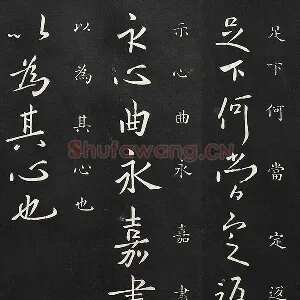 足下何當定返
足下何當定返
示心曲永嘉書
示心曲永嘉書
以為其心也
以為其心也
Shufawang.CN